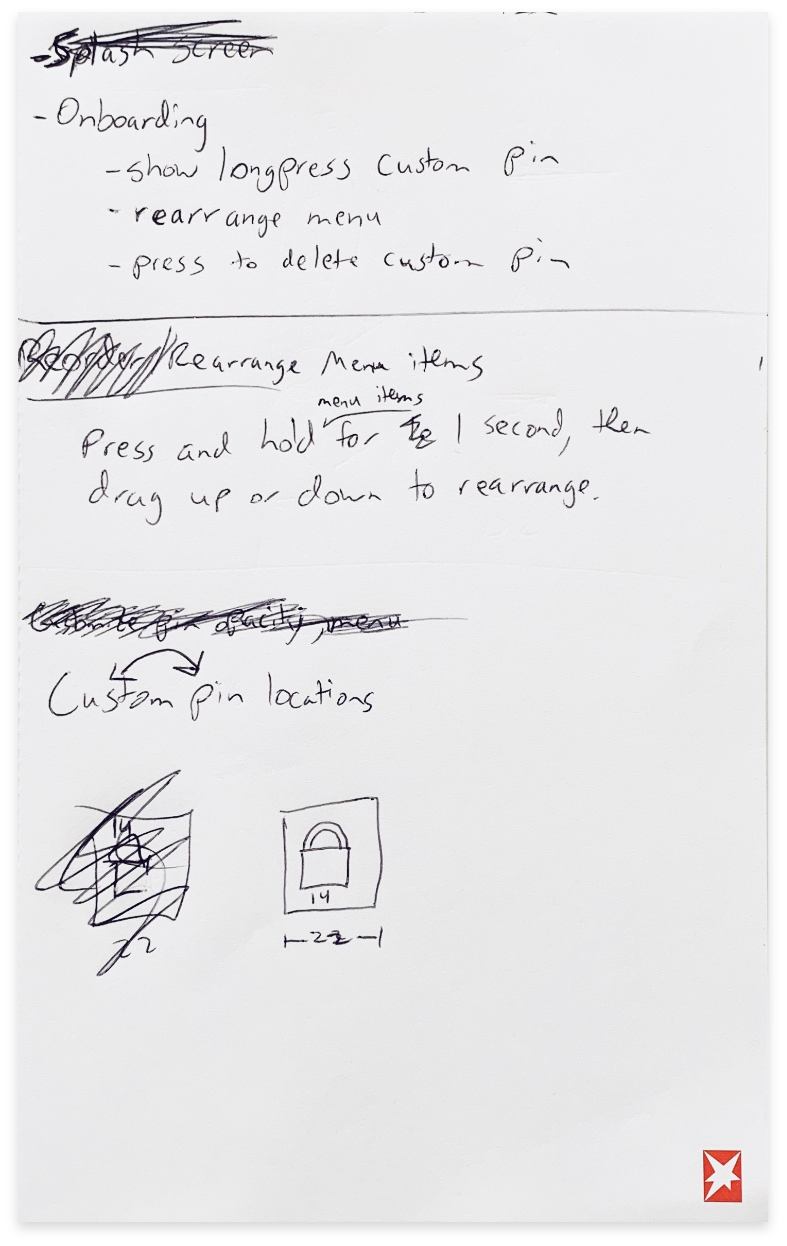 - Splash screen
- Onboarding
- show longpress custom pin
- rearrange menu
- press to delete custom pin
Reorder/Rearrange Menu items
menu items
Press and hold for 1 second, then
drag up or down to rearrange.
pin opacity, menu
Custom pin locations
14
14
22
22